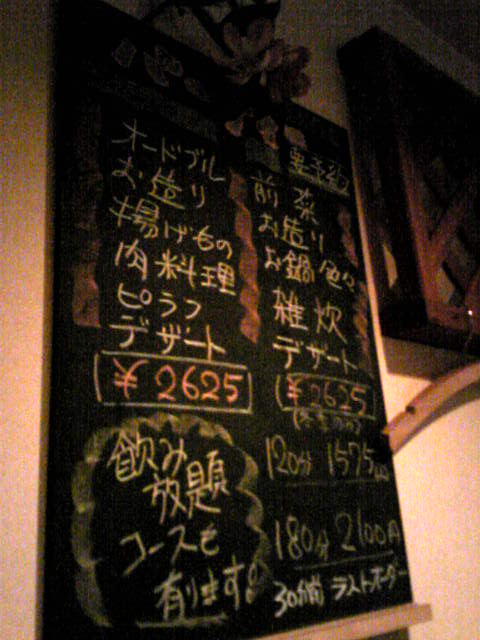 オードブル
お造り
揚げもの
肉料理
ピラフ
デザート
¥2625
要予約
前菜
お造り
お鍋色々
雑炊
デザート
¥2625
飲み
放題
コースも
有ります!
120分 1575円
180分 2100円
30分前 ラストオーダー